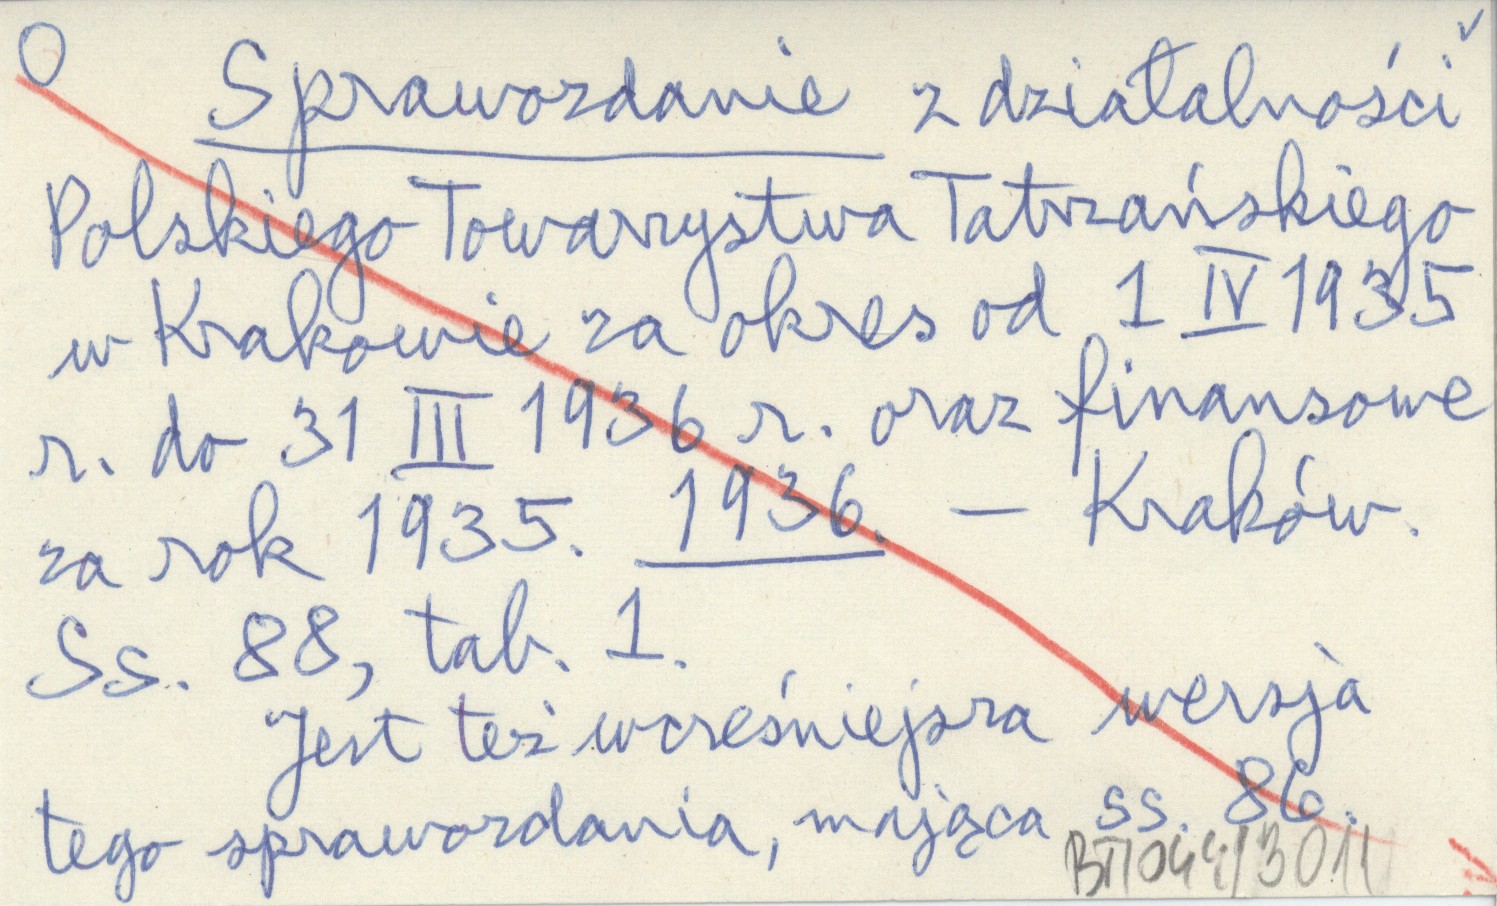 O Sprawozdanie z działalności
Polskiego Towarzystwa Tatrzańskiego
w Krakowie za okres od 1 IV 1935
r. do 31 III 1936 r. oraz finansowe
za rok 1935. 1936. — Kraków.
Ss. 88, tab. 1.
Jest też wcześniejsza wersja
tego sprawozdania, mająca ss. 86.